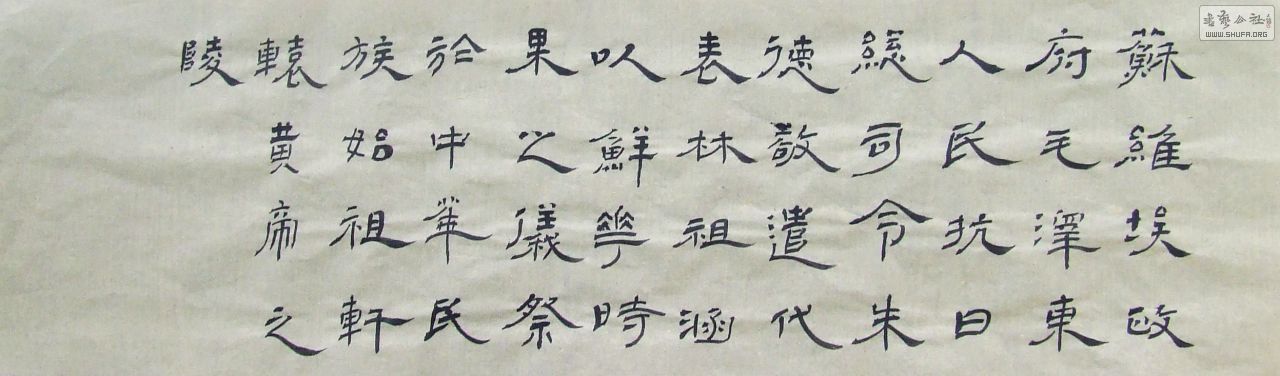 蘇維埃政
府毛澤東
人民抗日
總司令朱
德敬遣代
表林祖涵
以鮮花時
果之儀祭
於中華民
族始祖軒
轅黃帝之
陵
書藝公社
WWW.SHUFA.ORG